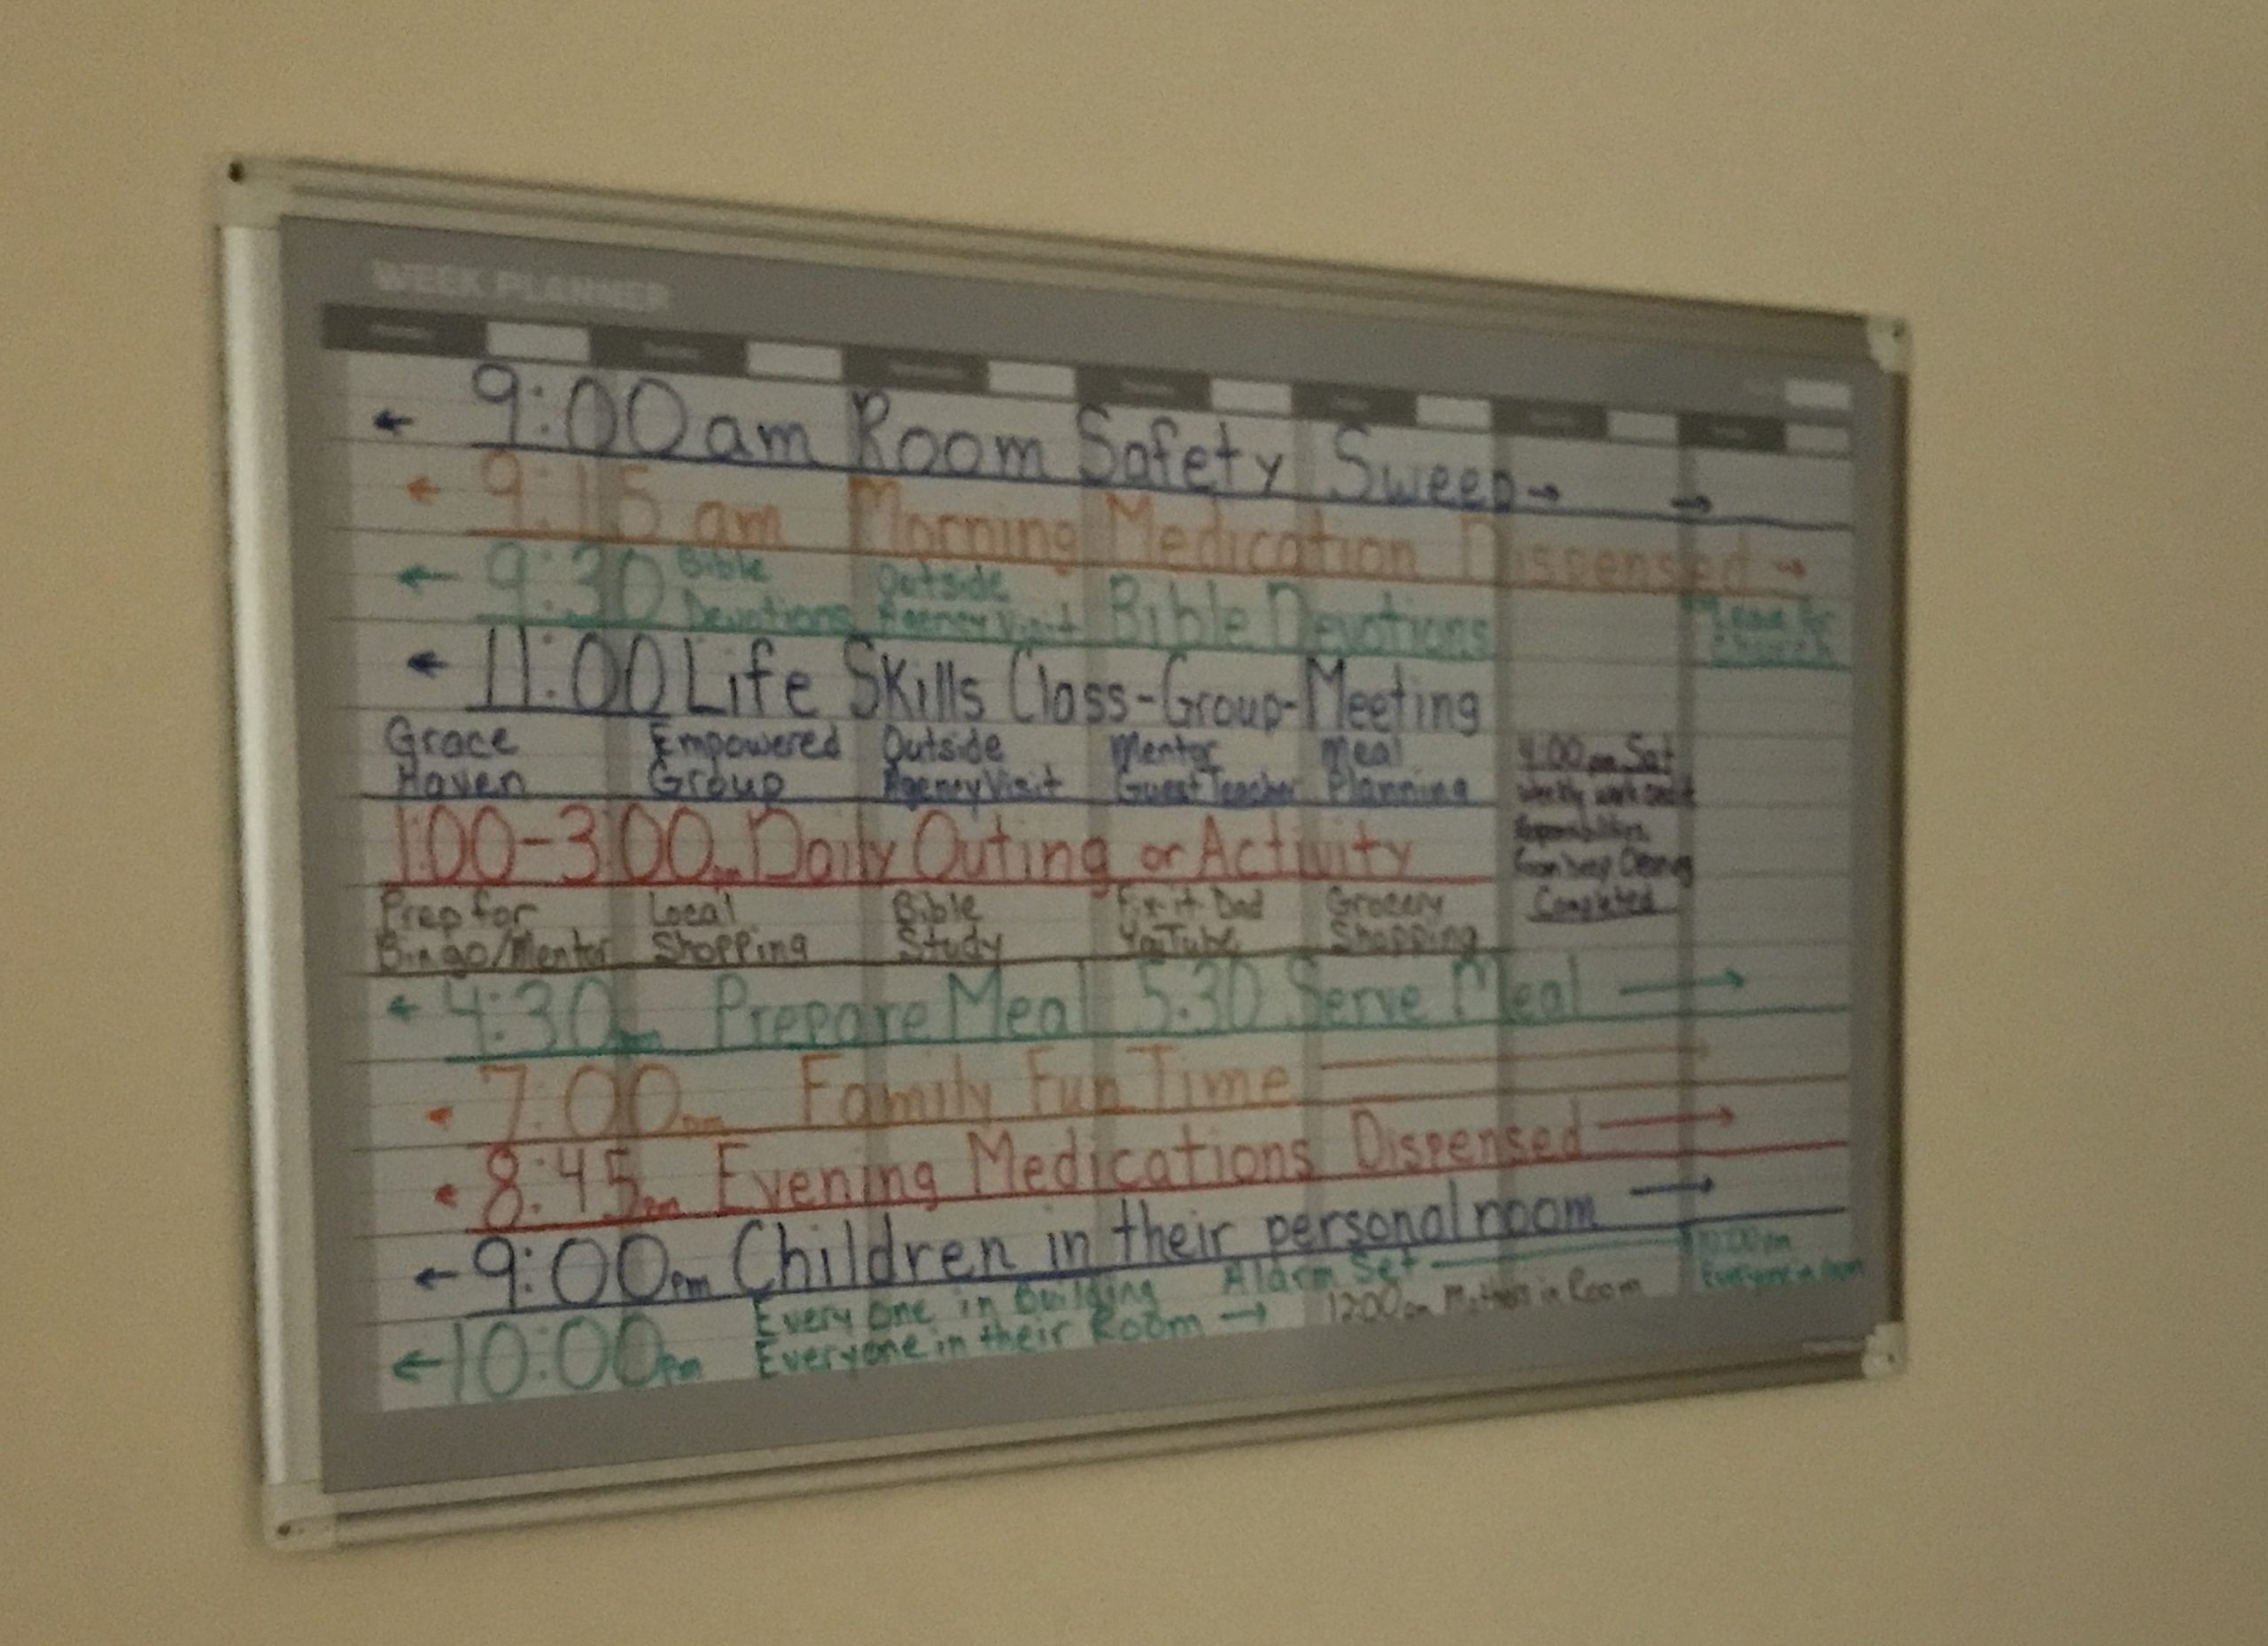 WEEK PLANNER
← 9:00am Room Safety Sweep→ →
← 9:15 am Morning Medication Dispensed →
← 9:30 Bible Devotions Outside Agency Visit Bible Devotions Leave for Church
← 11:00 Life Skills Class-Group-Meeting
Grace Empowered Outside Mentor Meal 4:00pm Sat
Haven Group Agency Visit Guest Teacher Planning weekly work
1:00-3:00pm Daily Outing or Activity
Completed
Prep for Local Bible Fix it Dad Grocery
Bingo/Mentor Shopping Study YouTube Shopping
← 4:30pm Prepare Meal 5:30 Serve Meal →
7:00pm Family Fun Time
8:45pm Evening Medications Dispensed →
← 9:00pm Children in their personal room →
Every one in Building Alarm Set 10:00pm
←10:00pm Everyone in their Room → 12:00am Mothers in Room Everyone in